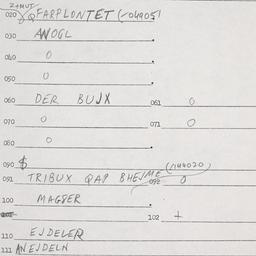 020 QFARPLONTET (/04905
030 ANOGL
040 0
050 0
060 DER BUJX 061 0
070 0 071 0
080 0
090 $ (/144020)
091 TRIBUX QAP BHEJME 092 0
100 MAGPER
102 +
110 EJDELER
111 ANEJDELN